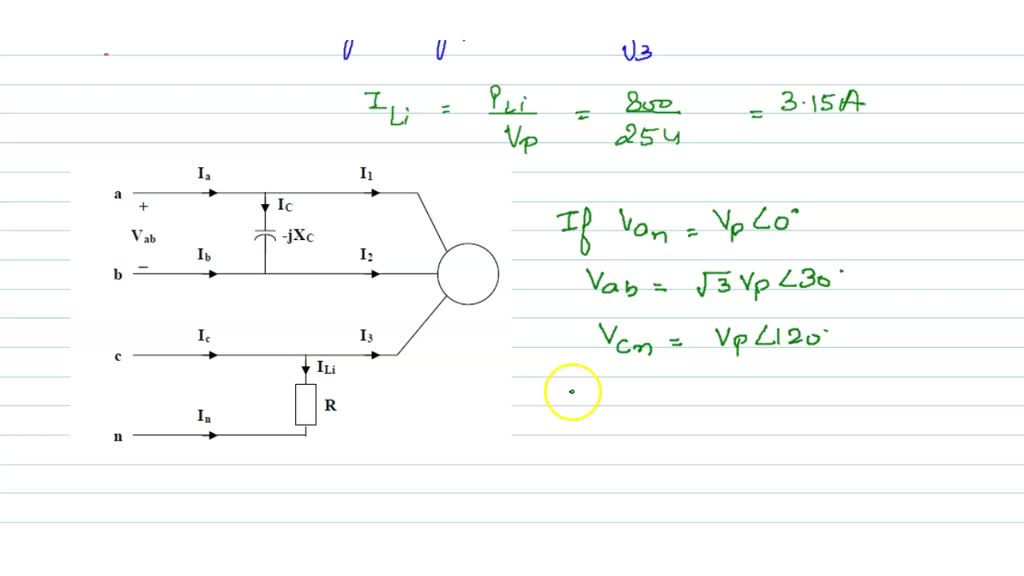 √3
I_Li = P_Li / V_p = 800 / 254 = 3.15A
I_a I_1
a
+ I_C
V_ab -jX_C
I_b I_2
b −
I_c I_3
c
I_Li
R
I_n
n
If V_on = V_p∠0°
V_ab = √3 V_p∠30°
V_cn = V_p∠120°